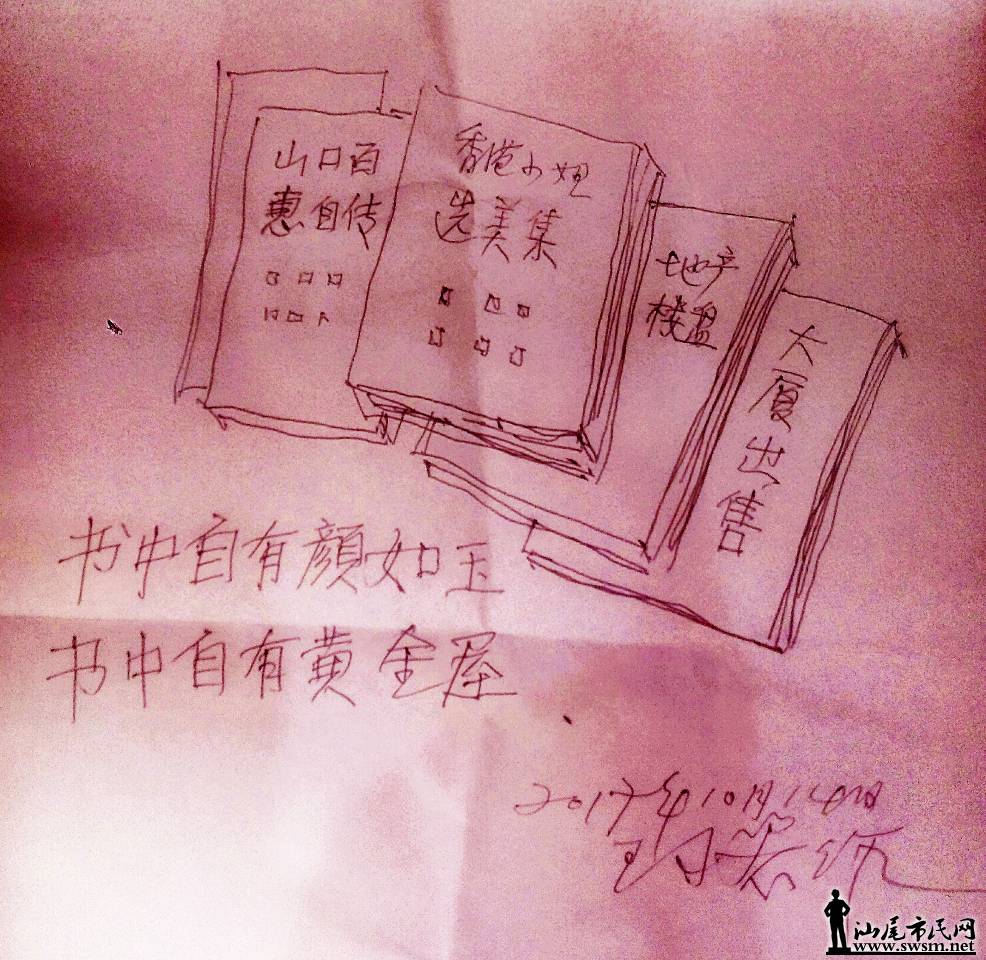 山口百
惠自传
香港小姐
选美集
地产
楼盘
大厦出售
书中自有顔如玉
书中自有黄金屋
2017年10月14日
汕尾市民网
www.swsm.net